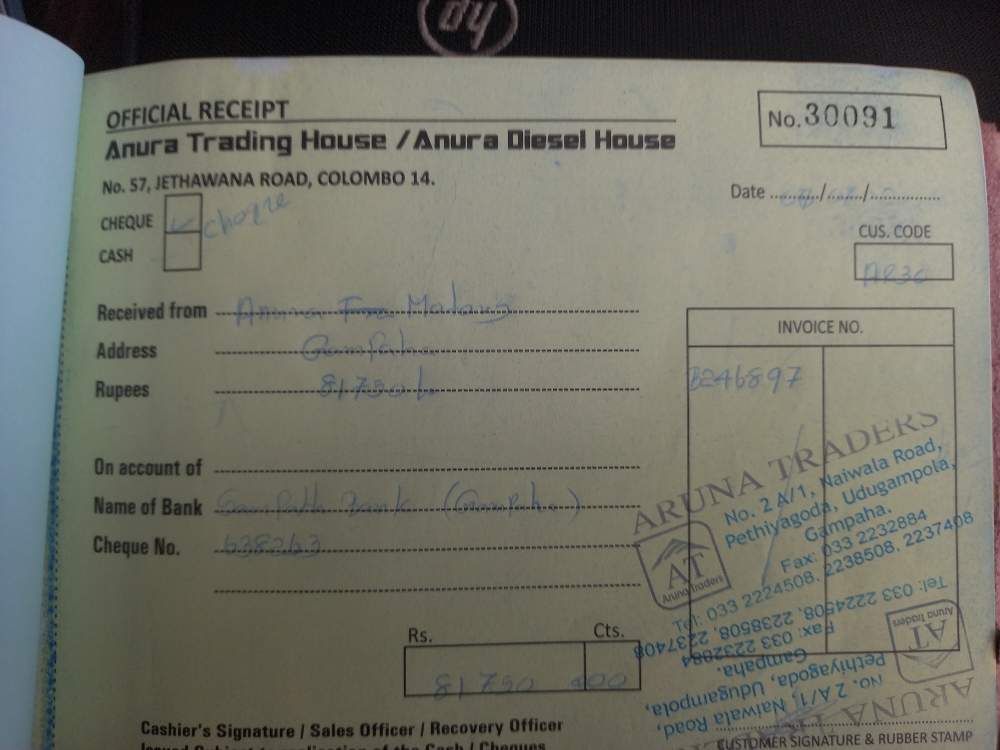 hp
OFFICIAL RECEIPT
No. 30091
Anura Trading House / Anura Diesel House
No. 57, JETHAWANA ROAD, COLOMBO 14.
Date ......../......../................
CHEQUE cheque
CUS. CODE
CASH
AR30
Received from Anura
INVOICE NO.
Address Gampaha
Rupees 81750/-
B246897
On account of
Name of Bank Bank (Gampaha)
Cheque No. 638263
ARUNA TRADERS
No. 2 A/1, Naiwala Road,
Pethiyagoda, Udugampola,
Gampaha.
Fax: 033 2232884
Tel: 033 2224508, 2238508, 2237408
AT
Aruna Traders
Rs. Cts.
81750 00
Tel: 033 2224508, 2238508, 2237408
Fax: 033 2232884
Gampaha.
Pethiyagoda, Udugampola,
No. 2 A/1, Naiwala Road,
ARUNA
AT
Aruna Traders
Cashier's Signature / Sales Officer / Recovery Officer
CUSTOMER SIGNATURE & RUBBER STAMP
Issued Subject to realization of the Cash / Cheques